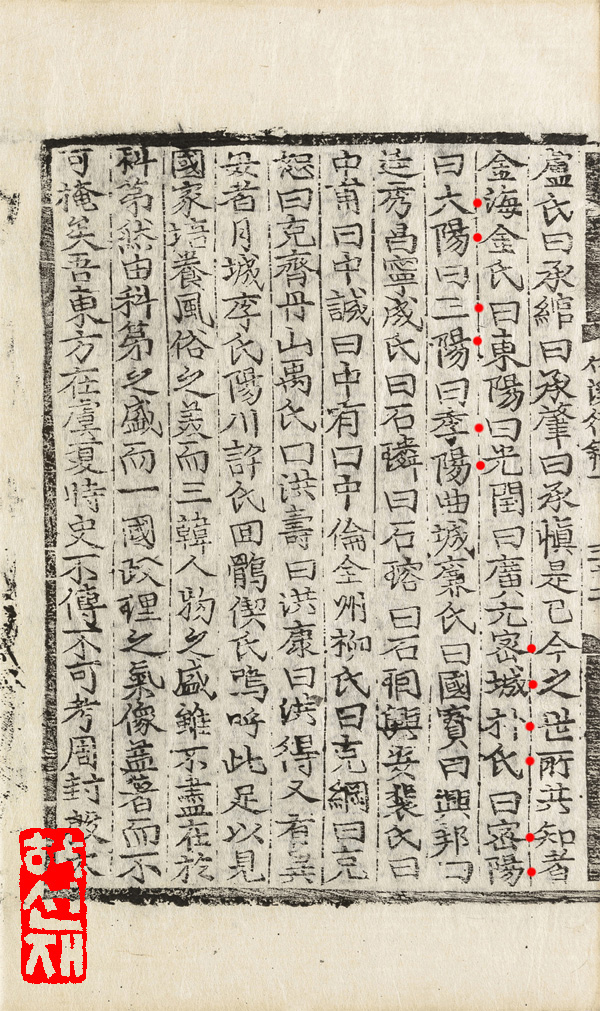 盧氏曰承綰曰承肇曰承愼是已今之世所共知者
金海金氏曰東陽曰光閏曰廣元密城朴氏曰密陽
曰大陽曰二陽曰季陽曲城廉氏曰國寶曰興邦曰
廷秀昌寧成氏曰石璘曰石瑢曰石珚興海裴氏曰
中甫曰中誠曰中有曰中倫全州柳氏曰克綱曰克
恕曰克齊丹山禹氏曰洪壽曰洪康曰洪得又有異
母者月城李氏陽川許氏回鶻偰氏嗚呼此足以見
國家培養風俗之美而三韓人物之盛雖不盡在於
科第然由科第之盛而一國政理之氣像盖著而不
可掩矣吾東方在虞夏時史不傳不可考周封殷太
하선재